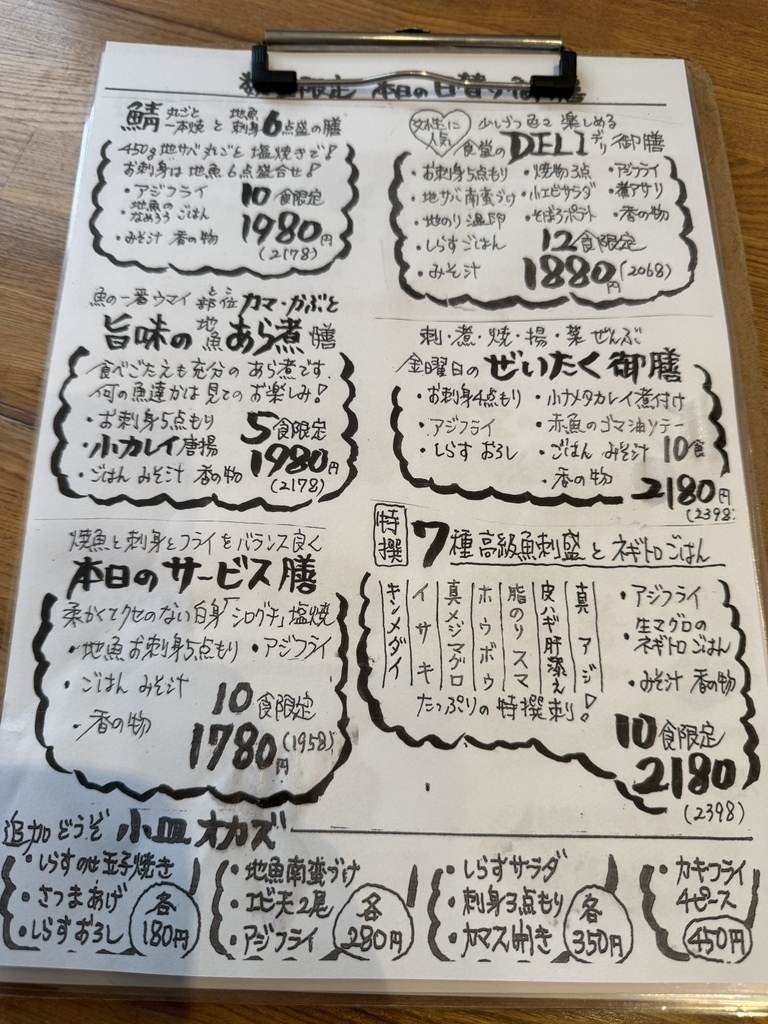 限定 本日の日替り御膳
鯖 丸ごと一本焼と 地魚刺身6点盛の膳
450g地サバ丸ごと塩焼きで!
お刺身は地魚6点盛合せ!
・アジフライ
・地魚のなめろうごはん
・みそ汁 香の物
10食限定
1980円
(2178)
女性に人気
少しづつ色々楽しめる
食堂のDELIデリ御膳
・お刺身5点もり ・焼物3点 ・アジフライ
・地サバ南蛮づけ ・小エビサラダ ・アサリ
・地のり温卵 ・そぼろポテト ・香の物
・しらすごはん
・みそ汁
12食限定
1880円(2068)
魚の一番ウマイ部位とこ カマ・かぶと
旨味の地魚あら煮膳
食べごたえも充分のあら煮です。
何の魚達かは見てのお楽しみ!
・お刺身5点もり
・小カレイ唐揚
・ごはん みそ汁 香の物
5食限定
1980円
(2178)
刺・煮・焼・揚・菜 ぜんぶ
金曜日のぜいたく御膳
・お刺身4点もり ・小ナメタカレイ煮付け
・アジフライ ・赤魚のゴマ油ソテー
・しらすおろし ・ごはん みそ汁
・香の物
10食
2180円
(2398)
焼魚と刺身とフライをバランス良く
本日のサービス膳
柔かくてクセのない白身「シログチ」塩焼
・地魚お刺身5点もり ・アジフライ
・ごはん みそ汁
・香の物
10食限定
1780円
(1958)
特撰
7種高級魚刺盛とネギトロごはん
真アジ
皮ハギ肝添え
脂のりスマ
ホウボウ
真メジマグロ
イサキ
キンメダイ
たっぷりの特撰刺!
・アジフライ
・生マグロのネギトロごはん
・みそ汁 香の物
10食限定
2180
(2398)
追加どうぞ 小皿オカズ
・しらすのせ玉子焼き
・さつまあげ
・しらすおろし
各180円
・地魚南蛮づけ
・エビ天2尾
・アジフライ
各280円
・しらすサラダ
・刺身3点もり
・カマス開き
各350円
・カキフライ
4ピース
450円